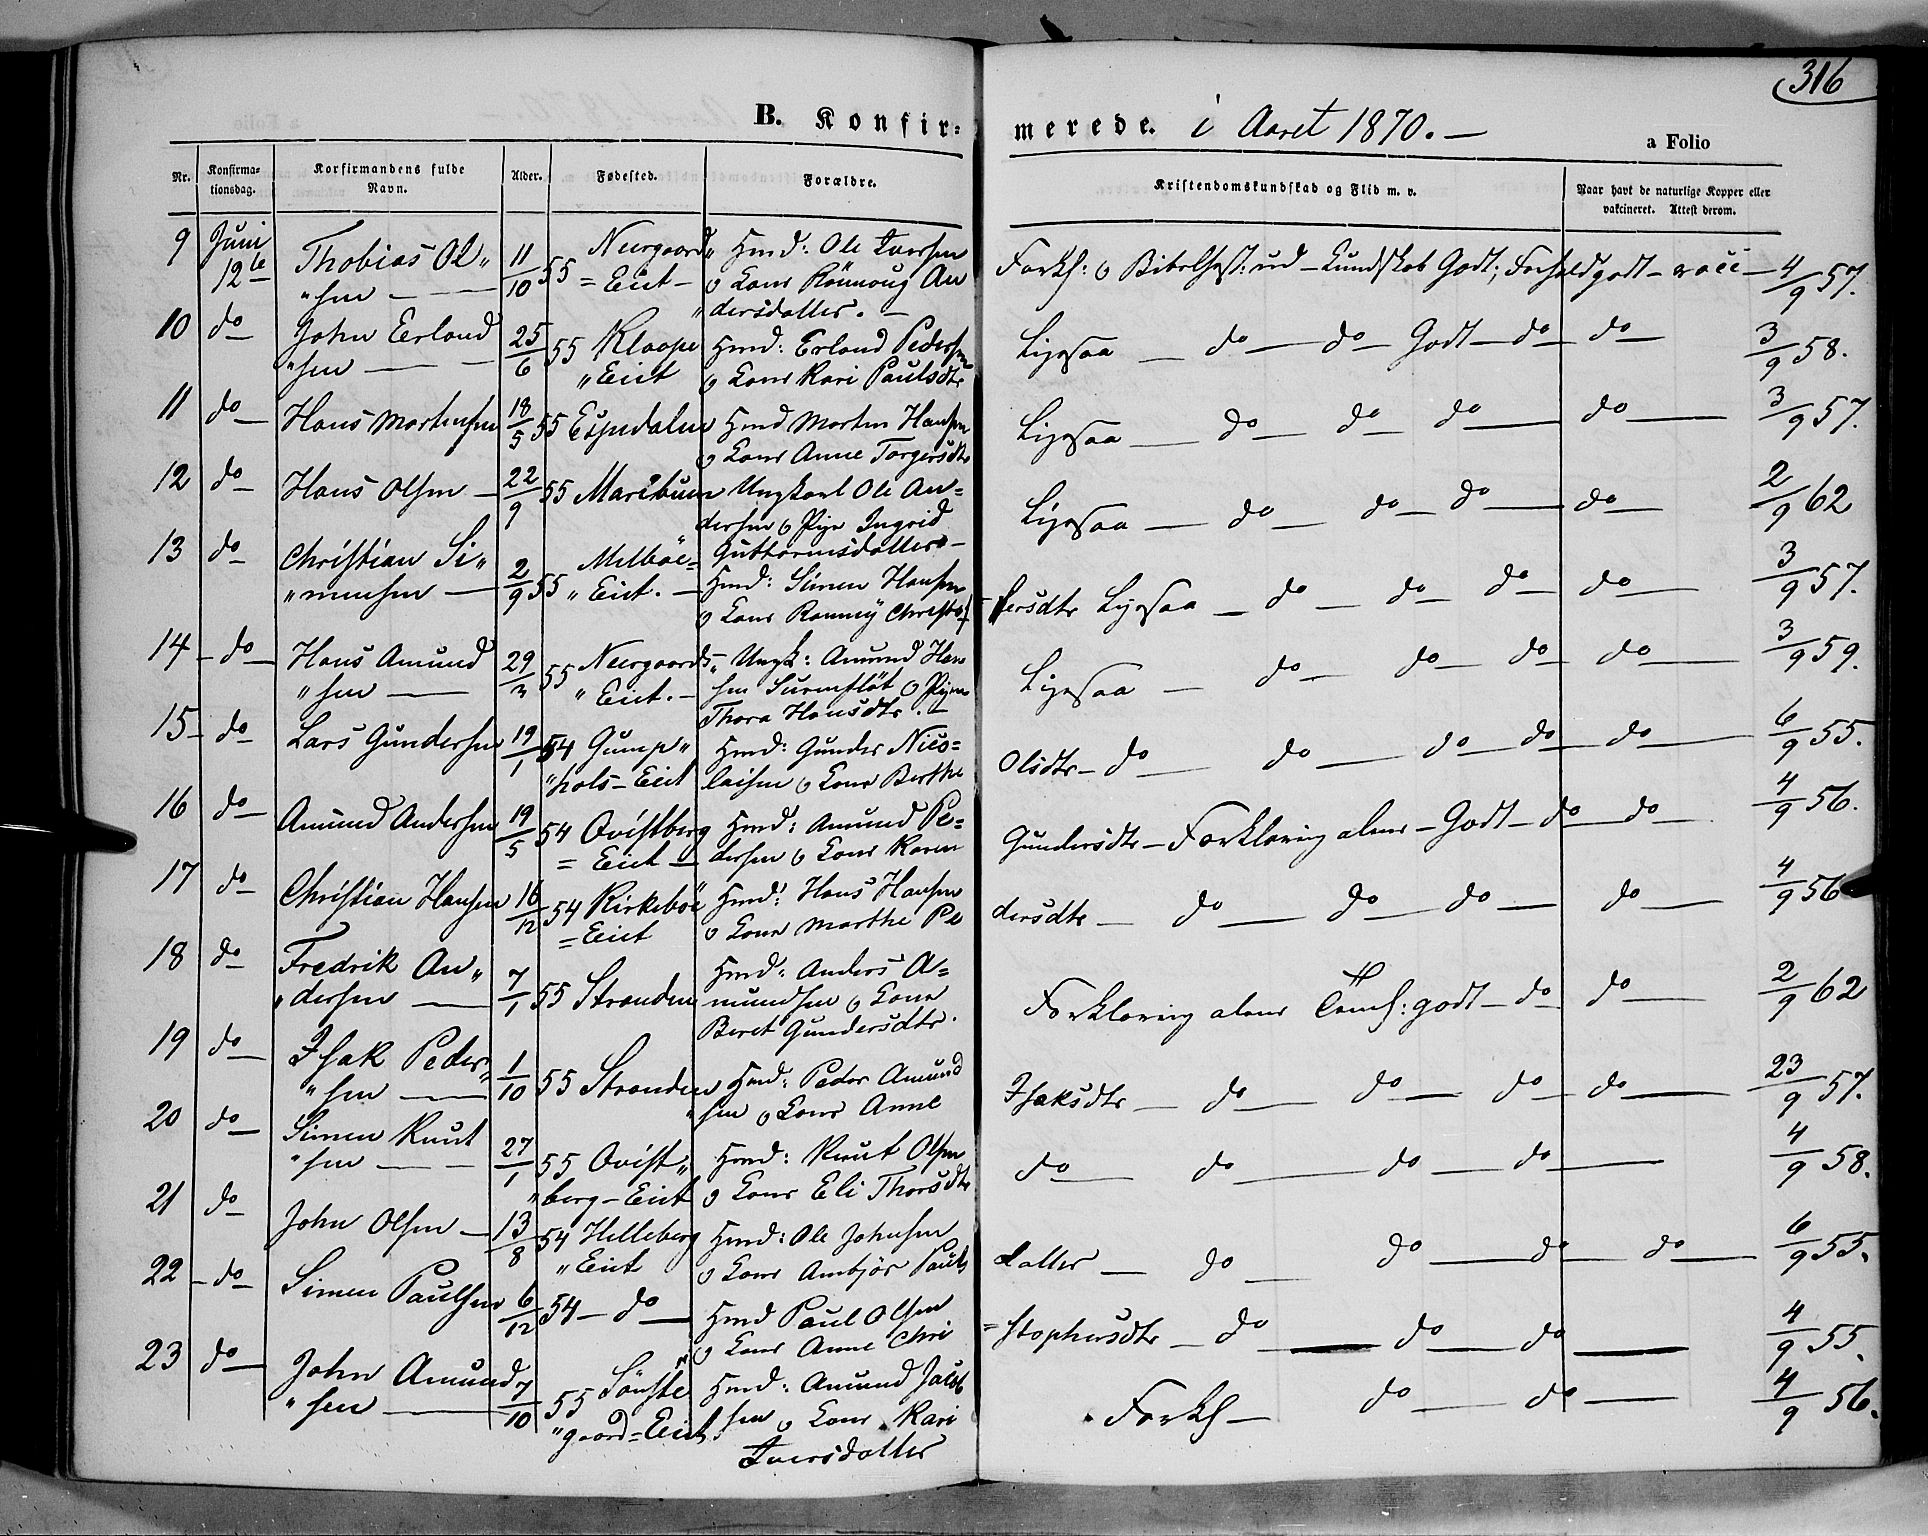 316
B. Konfir-
merede. i Aaret 1870. —
a Folio
Nr.
Konfirma-
tionsdag.
Korfirmandens fulde
Navn.
Alder.
Fødested.
Forældre.
Kristendomskundskab og Flid m. v.
Naar havt de naturlige Kopper eller
vakcineret. Attest derom.
9 Juni 12te Thobias Ol„ 11/10 55 Neergaard„ Hmd: Ole Iversen
„sen — = Eiet — o Kone Rønnoug An
„dersdatter. —
Forks: o Bibelhist: ud — Kundskab Godt; Forhold godt — vacc — 4/9 57.
10 do — John Eerland 25/6 55 Klaape Hmd: Erland Pedersen
„sen — „Eiet o Kone Kari Paulsdtr
Ligesaa — do — do — Godt — do — do — 3/9 58.
11 do — Hans Mortensen 18/5 55 Espedalen Hmd Morten Hansen
o Kone Anne Torgersdtr
Ligesaa — do — do — do — do — 3/9 57.
12 do — Hans Olsen — 22/9 55 Maribuen Ungkarl Ole An=
dersen o Pige Ingrid
Guttormsdatter —
Ligesaa — do — do — do — do — 2/9 62
13 do Christian Si„ 2/9 55 Melbøe=
„mensen — „Eiet. — Hmd: Simen Hansen
o Kone Ronnøy Christof
fersdtr Ligesaa — do — do — do — do — 3/9 57.
14 — do — Hans Amund 29/3 55 Neergaards„ Ungk: Amund Han
„sen — „Eiet. — sen Surenflöt o Pigen
Thora Hansdtr. —
Ligesaa — do — do — do — do — 3/9 59.
15 — do Lars Gundersen 19/1 54 Gump„ Hmd: Gunder Nico=
„hols — Eiet laisen o Kone Berthe
Olsdtr — do — do — do — do — do — 6/9 55.
16 do — Amund Andersen 19/5 54 Qvistberg Hmd: Amund Pe=
= Eiet — dersen o Kone Karen
Gundersdtr — Forklaring alene — Godt — do — do — 4/9 56.
17 do Christian Hansen 16/12 54 Kirkebøe Hmd: Hans Hansen
= Eiet o Kone Marthe Pe
dersdtr — do — do — do — do — 4/9 56
18 do Fredrik An„ 7/1 55 Stranden Hmd: Anders A=
„dersen — mundsen o Kone
Beret Gundersdtr.
Forklaring alene godt — do do — 2/9 62
19 do — Isak Peder= 1/10 55 Stranden Hmd: Peder Amund
„sen — „sen o Kone Anne
Isaksdtr — do — do — do — do — 23/9 57.
20 do — Simen Knut 27/1 55 Qvist„ Hmd: Knut Olsen
„sen — „berg — Eiet o Kone Eli Thorsdtr
do — do — do — do — 4/9 58.
21 do John Olsen — 13/8 54 Helleberg Hmd: Ole Johnsen
„Eiet o Kone Ambjør Pauls
datter — do — do — do — do — 6/9 55.
22 — do — Simen Paulsen 6/12 54 — do — Hmd Paul Olsen
o Kone Anne Chri
= stophersdtr — do — do — do — 4/9 55.
23 do — John Amund 7/10 55 Sönste Hmd: Amund Jacob
„sen — „gaard = Eiet sen o Kone Kari
Iversdatter
Forks — do — do — 4/9 56.